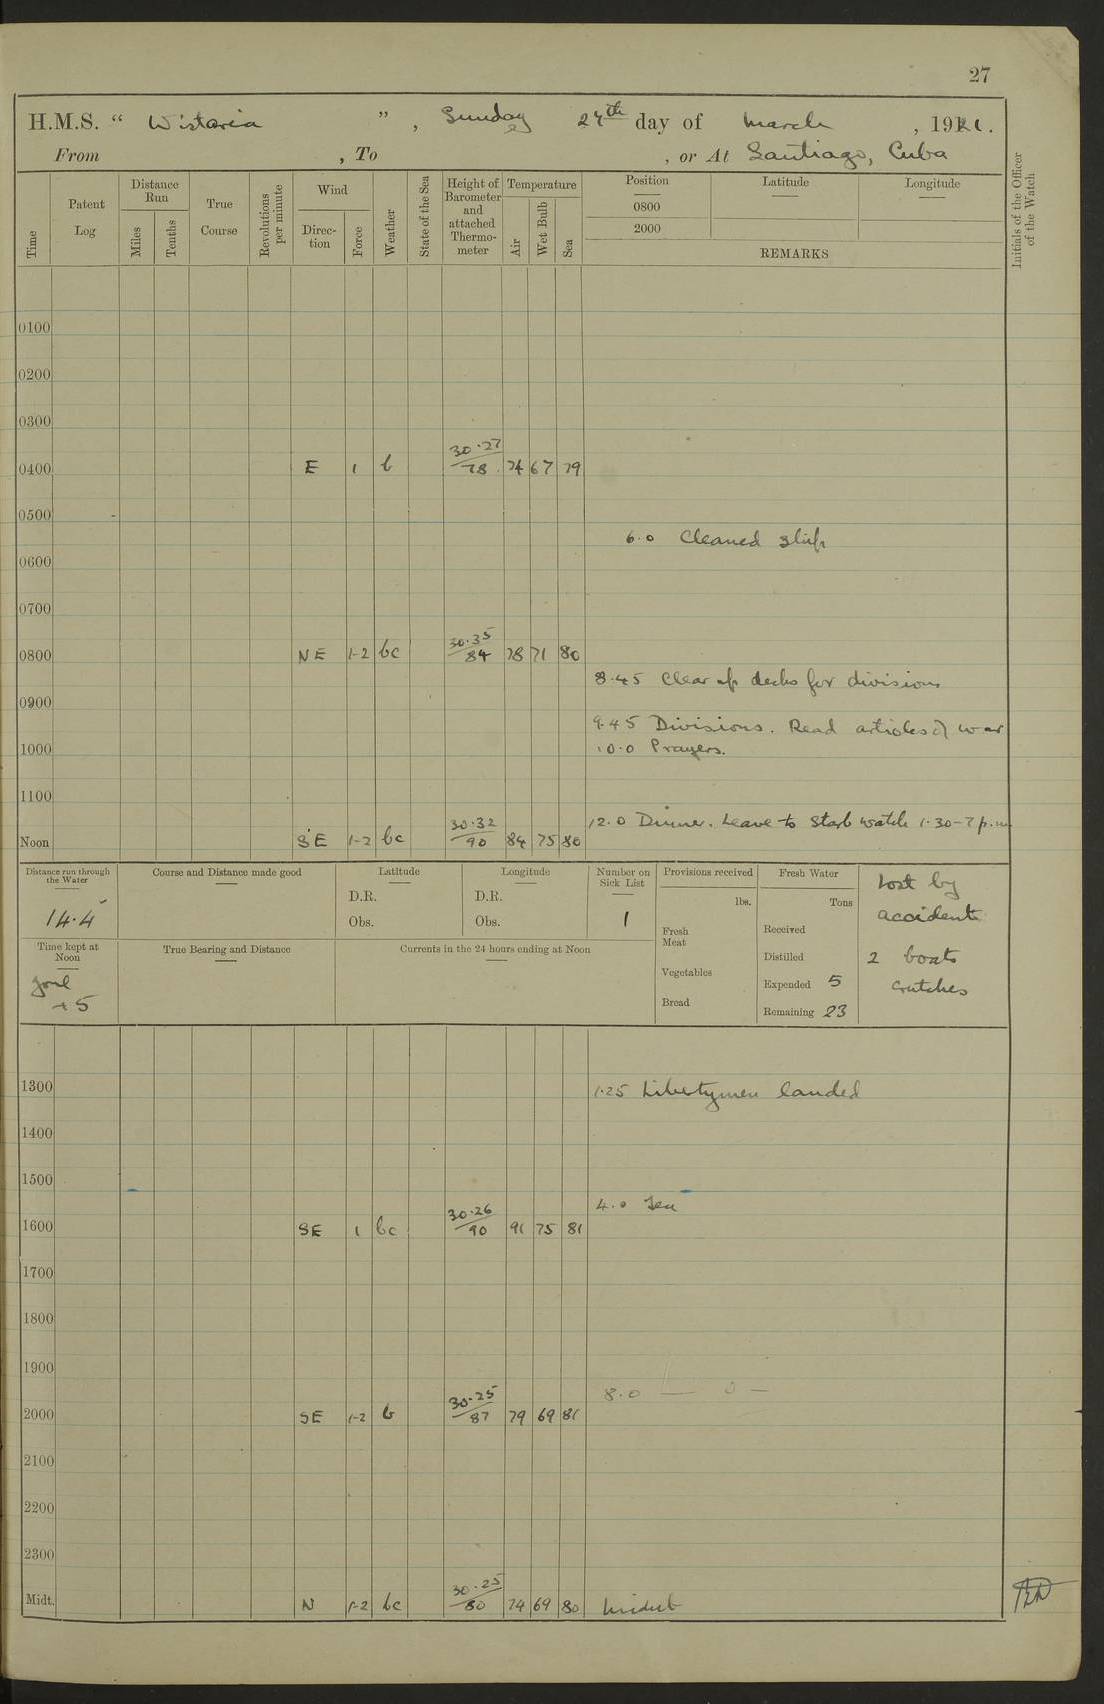 27
H.M.S. “ Wistaria ” , Sunday 27th day of March , 1921.
From , To , or At Santiago, Cuba
Time
Patent Log
Distance Run
Miles
Tenths
True Course
Revolutions per minute
Wind
Direction
Force
Weather
State of the Sea
Height of Barometer and attached Thermometer
Temperature
Air
Wet Bulb
Sea
Position
0800
2000
Latitude
Longitude
REMARKS
Initials of the Officer of the Watch
0100
0200
0300
0400 E 1 b 30.27/78 74 67 79
0500
6.0 Cleaned ship
0600
0700
0800 NE 1-2 bc 30.35/84 78 71 80
8.45 Clear up decks for divisions
0900
9.45 Divisions. Read articles of war
1000 10.0 Prayers.
1100
12.0 Dinner. Leave to Starb watch 1.30-7 p.m
Noon SE 1-2 bc 30.32/90 84 75 80
Distance run through the Water
14.4
Course and Distance made good
Latitude
D.R.
Obs.
Longitude
D.R.
Obs.
Number on Sick List
1
Provisions received
lbs.
Fresh Meat
Vegetables
Bread
Fresh Water
Tons
Received
Distilled
Expended 5
Remaining 23
Lost by
accident
2 boats
crutches
Time kept at Noon
+5
True Bearing and Distance
Currents in the 24 hours ending at Noon
1300 1.25 Libertymen landed
1400
1500
4.0 Tea
1600 SE 1 bc 30.26/90 91 75 81
1700
1800
1900
8.0 — 0 —
2000 SE 1-2 b 30.25/87 79 69 81
2100
2200
2300
Midt. N 1-2 bc 30.25/80 74 69 80